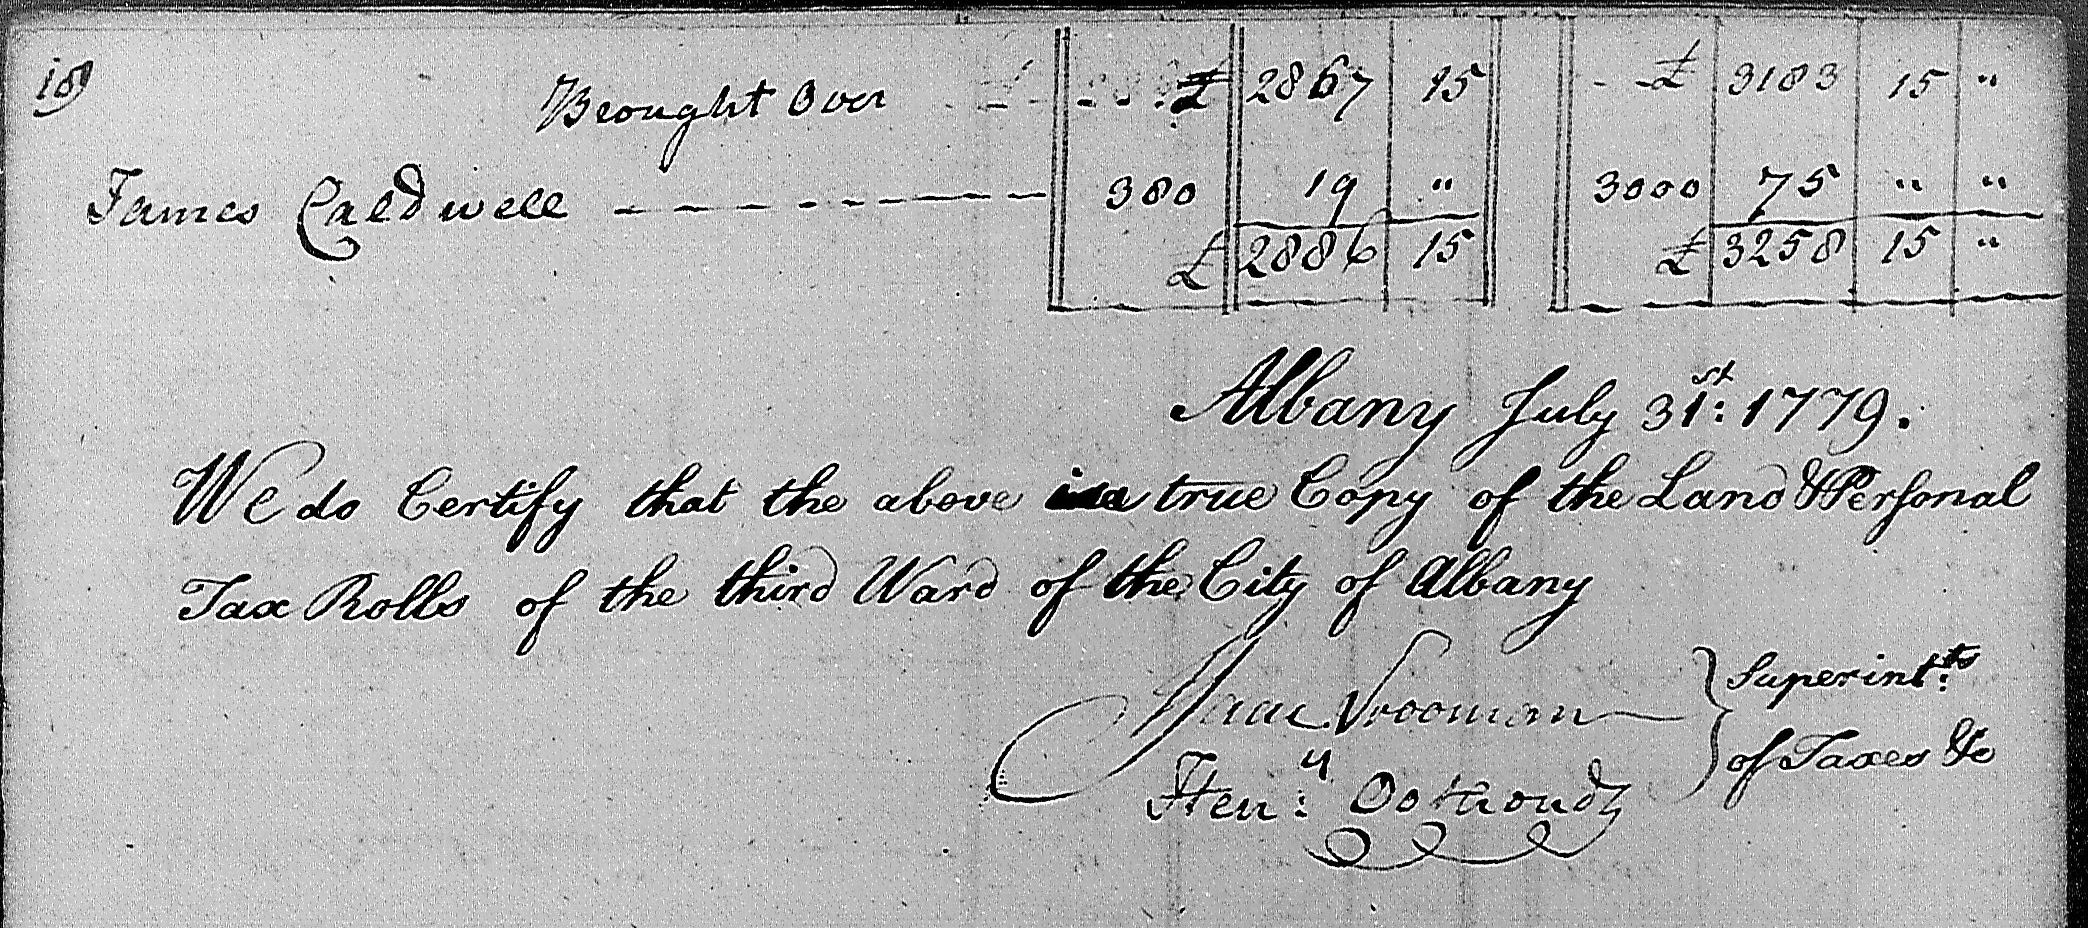 18
Brought Over - - - £ 2867 15 - - £ 3183 15 "
James Caldwell - - - - - - - - - 380 19 " 3000 75 " "
£ 2886 15 £ 3258 15 "
Albany July 31st: 1779.
We do Certify that the above is a true Copy of the Land & Personal
Tax Rolls of the third Ward of the City of Albany
Isaac Vrooman
Heny: Oothoudt
Superintts:
of Taxes &c